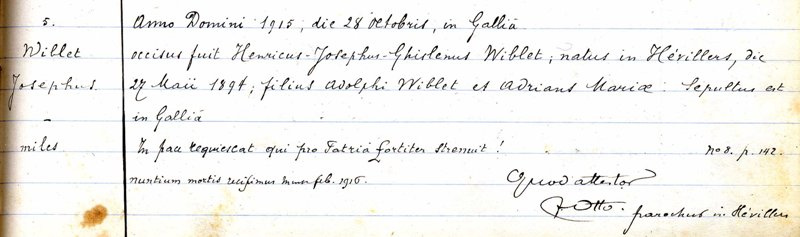 5.
Willet
Josephus
-
miles
Anno Domini 1915, die 28 octobris, in Galliâ
occisus fuit Henricus-Josephus-Ghislenus Wiblet, natus in Hévillers, die
27 Maii 1894; filius Adolphi Wiblet et Adrians Mariæ. Sepultus est
in Galliâ
In pace requiescat qui pro Patriâ fortiter stremuit! no 8. p. 142.
nuntium mortis recepimus feb. 1916.
Quod attestor
Otto. parochus in Hévillers